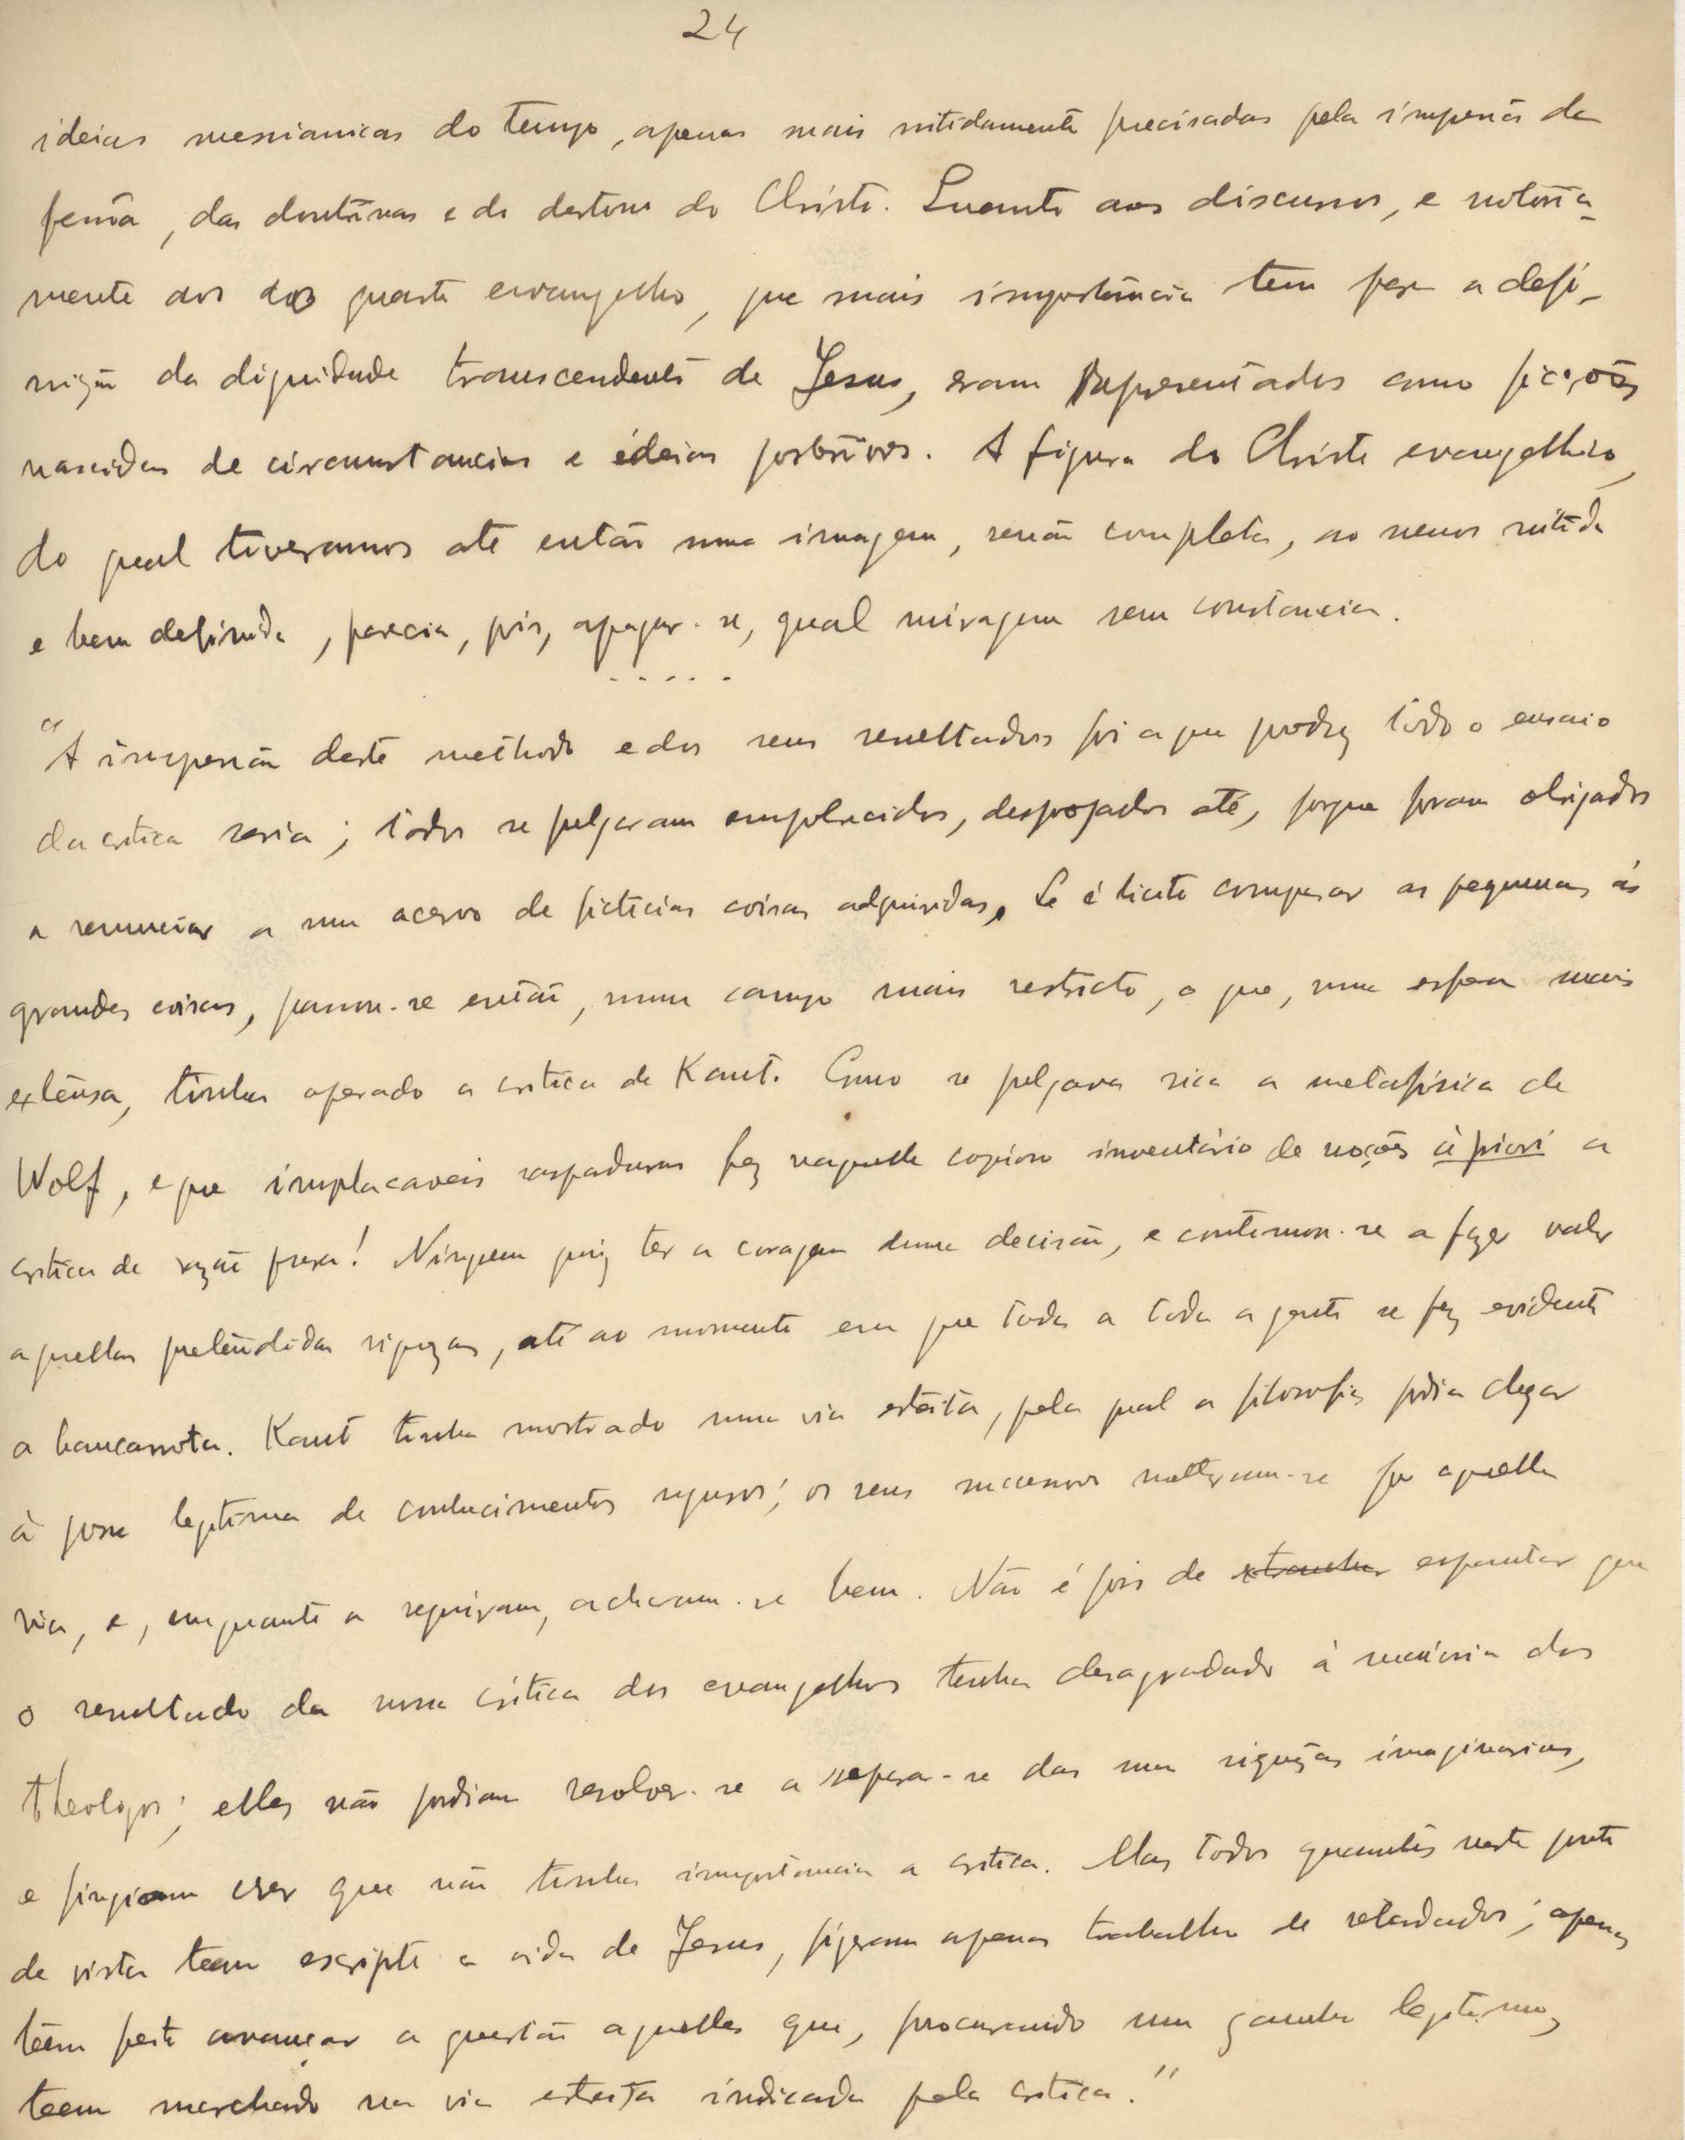 24
ideias messianicas do tempo, apenas mais nitidamente precisadas pela impressão da
pessoa, das doutrinas e do destino do Christo. Quanto aos discursos, e notoria-
mente aos do quarto evangelho, que mais importancia tem para a defi-
nição da dignidade transcendente de Jesus, eram representados como ficções
nascidas de circumstancias e ideias posteriores. A figura do Christo evangelhico,
do qual tiveramos até então uma imagem, senão completa, ao menos nitida
e bem definida, parecia, pois, apagar-se, qual miragem sem constancia.
.....
"A impressão deste methodo e dos seus resultados foi a que produz todo o ensaio
da critica seria; todos se julgaram empobrecidos, despojados até, porque foram obrigados
a renunciar a um acervo de ficticias coisas adquiridas. Se é licito comparar as pequenas ás
grandes coisas, passou-se então, num campo mais restricto, o que, numa esfera mais
extensa, tinha operado a critica de Kant. Como se julgava rica a metafisica de
Wolf, e que implacaveis raspaduras fez naquelle copioso inventário de noções à priori a
critica da razão pura! Ninguem quiz ter a coragem duma decisão, e continuou-se a fazer valer
aquellas pretendidas riquezas, até ao momento em que toda a toda a gente se fez evidente
a bancarrota. Kant tinha mostrado uma via estreita, pela qual a filosofia podia chegar
à posse legitima de conhecimentos seguros; os seus successores metteram-se por aquella
via, e, emquanto a seguiram, acharam-se bem. Não é pois de espantar que
o resultado da nossa critica dos evangelhos tenha desagradado á maioria dos
theologos; elles não podiam resolver-se a separar-se das suas riquezas imaginarias,
e fingiam crer que não tinha importancia a critica. Mas todos quantos neste ponto
de vista teem escripto a vida de Jesus, fizeram apenas trabalho de retardados; apenas
teem feito avançar a questão aquelles que, procurando um ganho legitimo,
teem marchado na via estreita indicada pela critica."